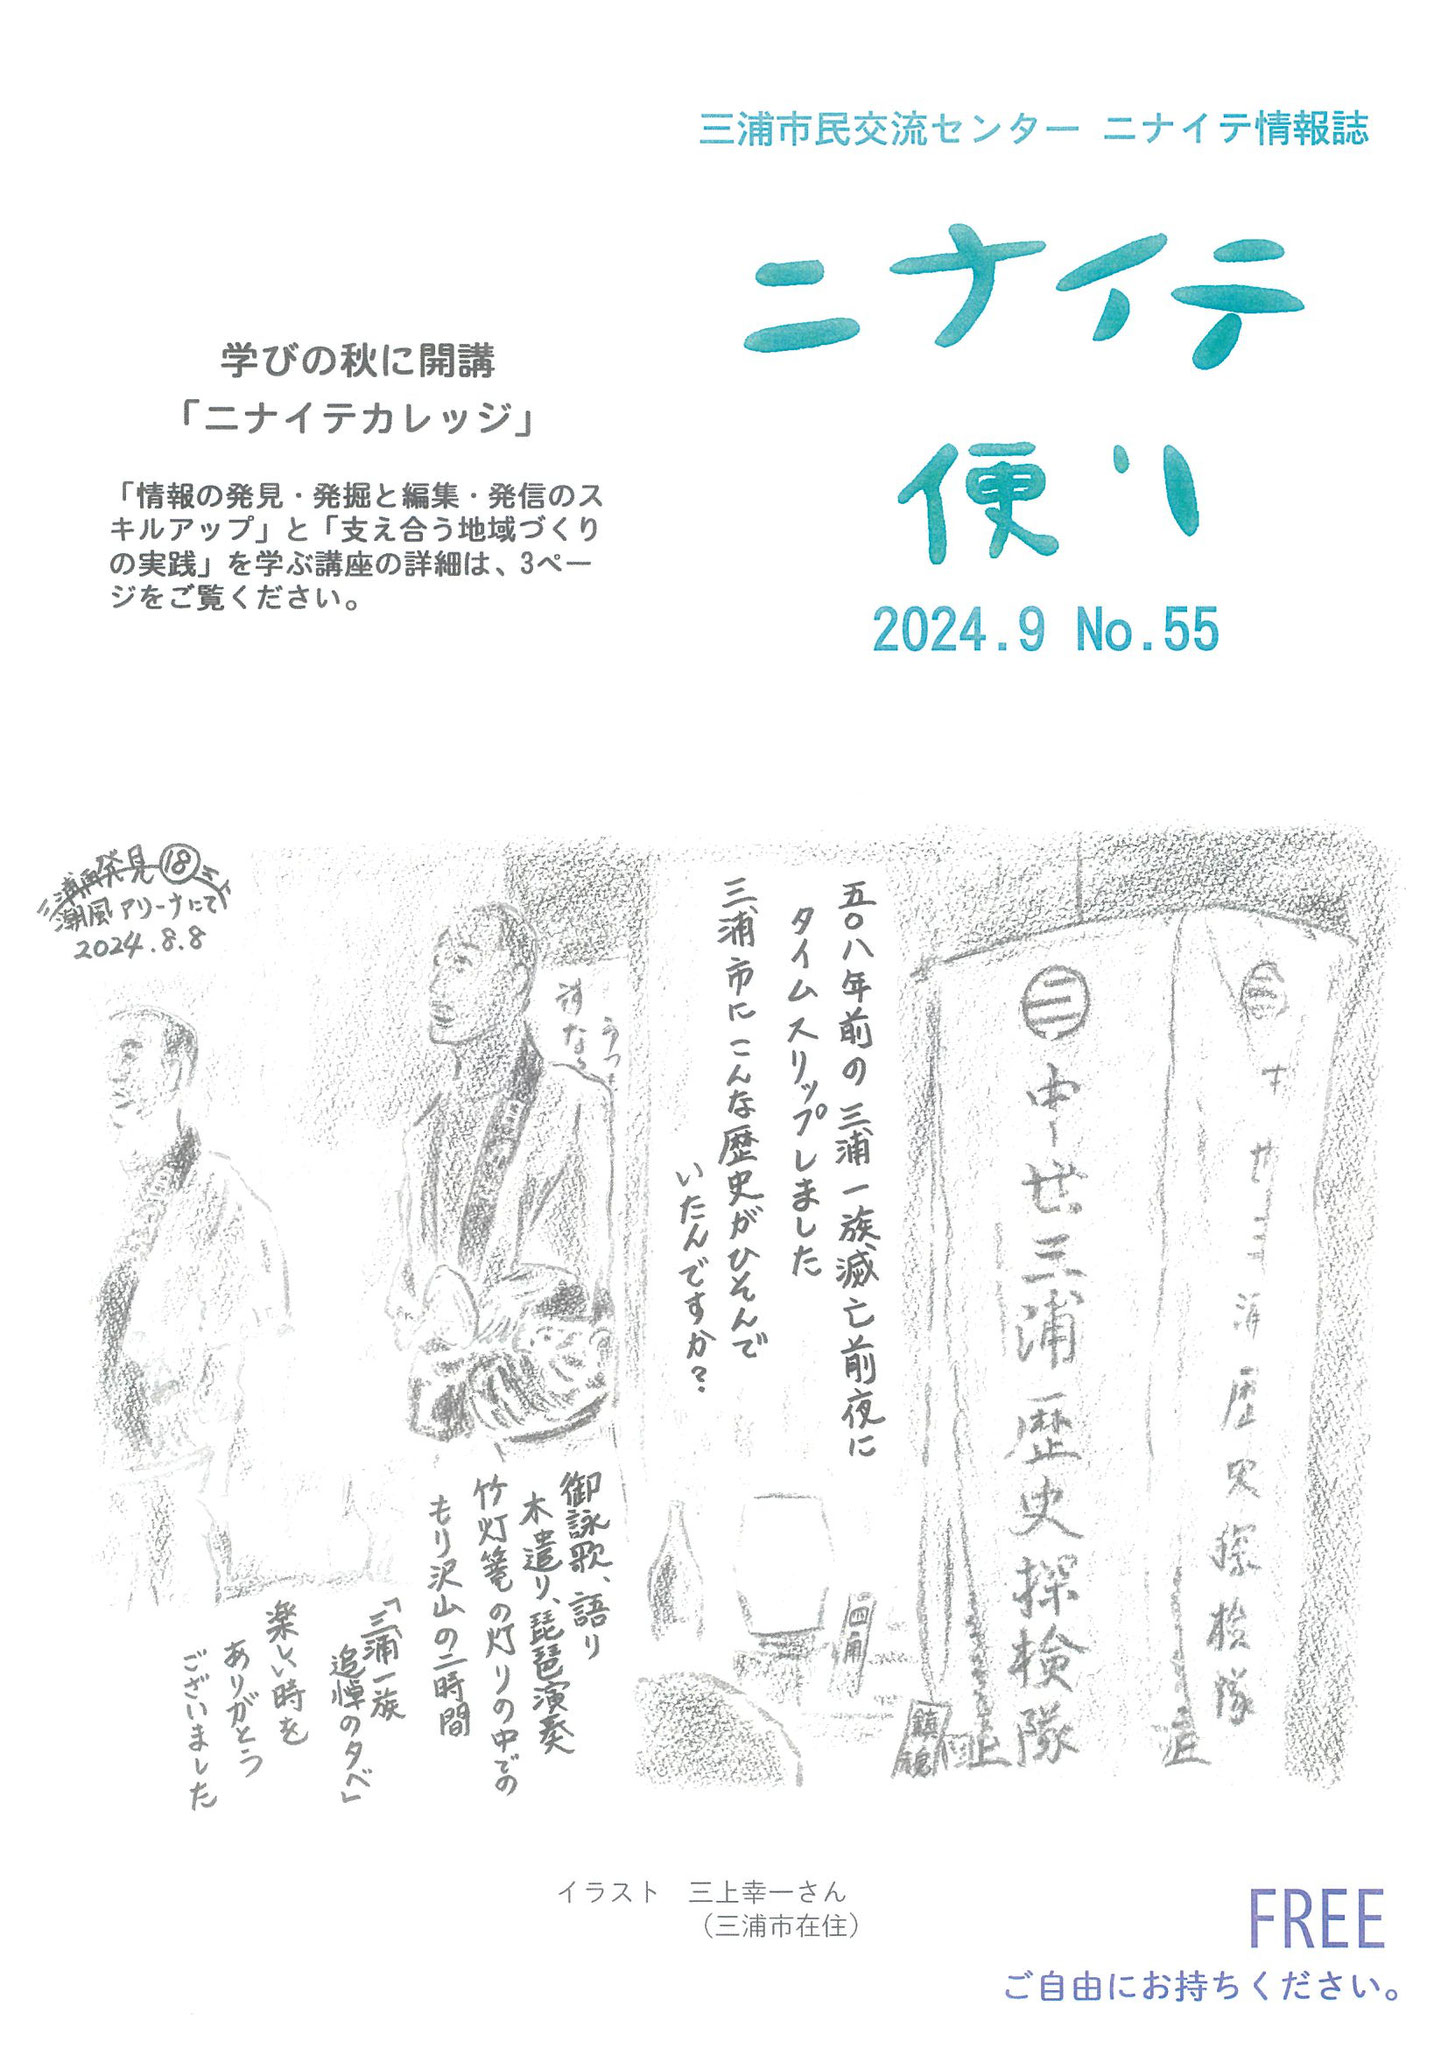 三浦市民交流センター ニナイテ情報誌
ニナイテ
便り
2024.9 No.55
学びの秋に開講
「ニナイテカレッジ」
「情報の発見・発掘と編集・発信のス
キルアップ」と「支え合う地域づくり
の実践」を学ぶ講座の詳細は、3ペー
ジをご覧ください。
三浦再発見⑱三上
潮風アリーナにて
2024.8.8
五〇八年前の三浦一族滅亡前夜に
タイムスリップしました
三浦市にこんな歴史がひそんで
いたんですか?
中世三浦歴史探検隊
中世三浦歴史探検隊
鎮魂
御詠歌、語り
木遣り、琵琶演奏
竹灯篭の灯りの中での
もり沢山の二時間
「三浦一族
追悼の夕べ」
楽しい時を
ありがとう
ございました
イラスト 三上幸一さん
(三浦市在住)
FREE
ご自由にお持ちください。